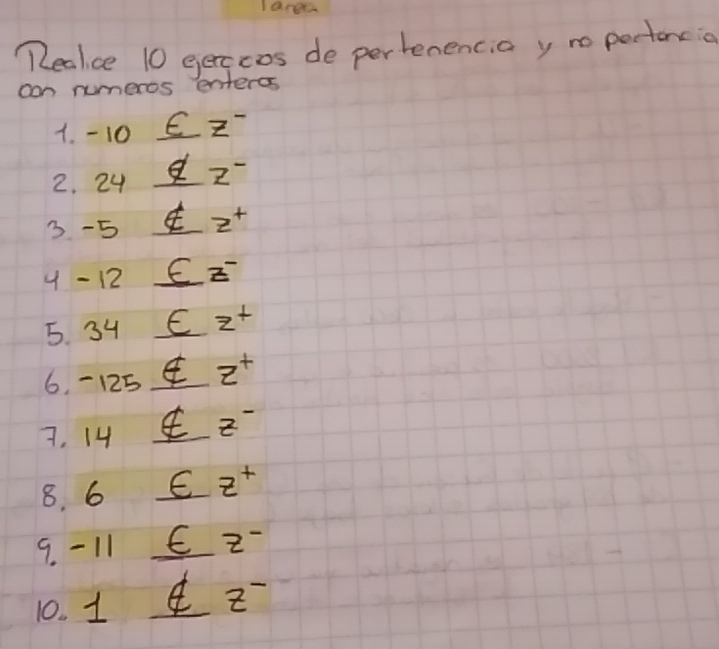 Tarea
Realice 10 ejerccos de pertenencia y no pertencia
con numeros enteros
1. -10 ∈ z⁻
2. 24 ∉ z⁻
3. -5 ∉ z⁺
4 -12 ∈ z⁻
5. 34 ∈ z⁺
6. -125 ∉ z⁺
7. 14 ∉ z⁻
8. 6 ∈ z⁺
9. -11 ∈ z⁻
10. 1 ∉ z⁻